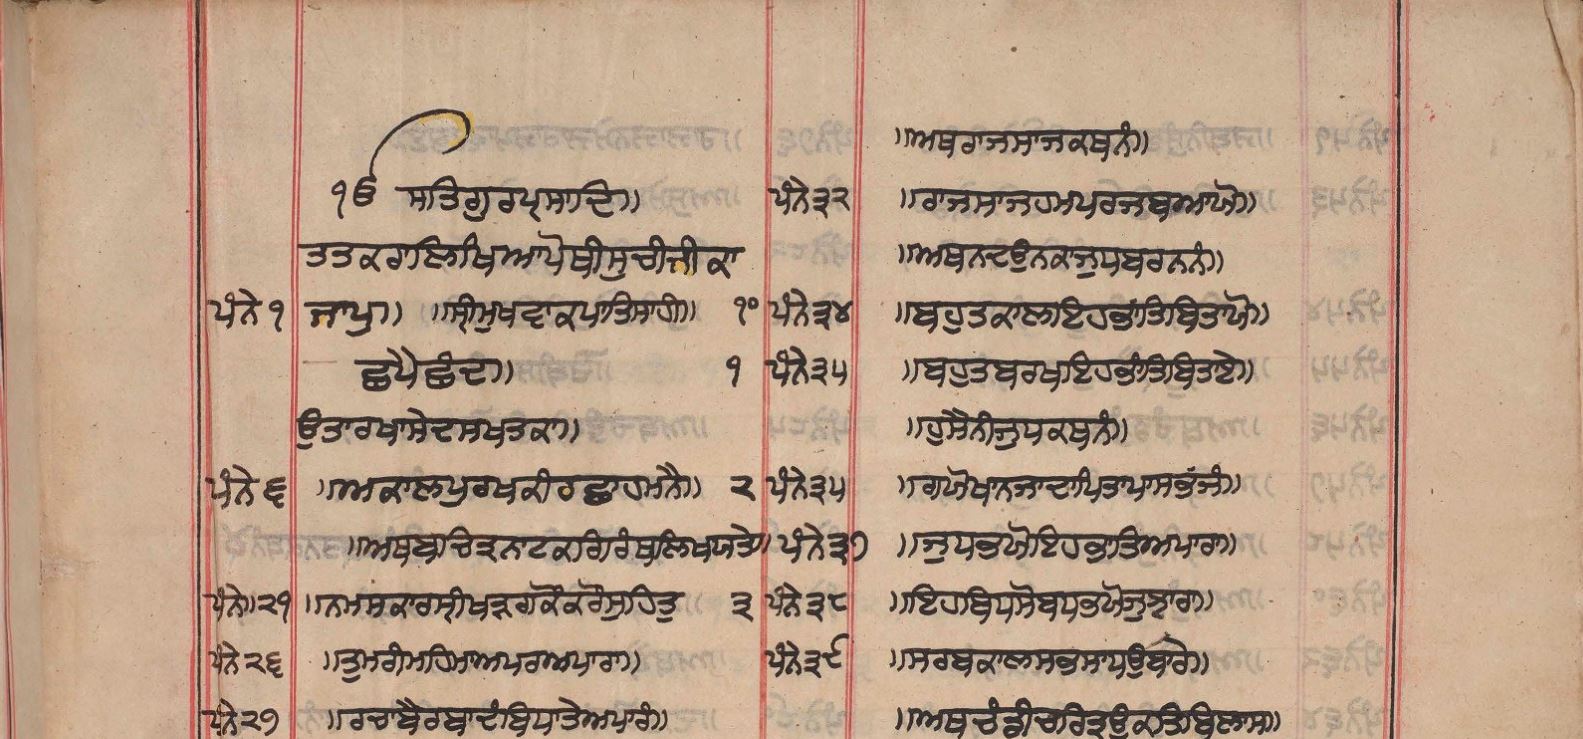 ੴ ਸਤਿਗੁਰਪ੍ਰਸਾਦਿ॥
ਤਤਕਰਾਲਿਖਿਆਪੋਥੀਸੁਚੀਜੀਕਾ
ਪੰਨੇ ੧ ਜਾਪੁ॥ ॥ਸ੍ਰੀਮੁਖਵਾਕਪਾਤਿਸਾਹੀ॥ ੧੦
ਛਪੈਛੰਦ॥ ੧
ਉਤਾਰਖਾਸੇਦਸਖਤਕਾ॥
ਪੰਨੇ ੬ ॥ਅਕਾਲਪੁਰਖਕੀਰਛਾਹਮਨੈ॥ ੨
॥ਅਥਬਚਿਤ੍ਰਨਾਟਕਗਿਰੰਥਲਿਖਯਤੇ॥
ਪੰਨੇ॥੨੧ ॥ਨਮਸਕਾਰਸ੍ਰੀਖੜਗਕੌਕਰੌਸੁਹਿਤੁ ੩
ਪੰਨੇ ੨੬ ॥ਤੁਮਰੀਮਹਿਮਾਅਪਰਅਪਾਰਾ॥
ਪੰਨੇ ੨੭ ॥ਰਚਾਬੈਰਬਾਦੰਬਿਧਾਤੇਅਪਾਰੰ॥
॥ਅਥਰਾਜਸਾਜਕਥਨੰ॥
ਪੰਨੇ ੩੨ ॥ਰਾਜਸਾਜਹਮਪਰਜਬਆਯੋ॥
॥ਅਥਨਦਉਨਕਾਜੁਧਬਰਨਨੰ॥
ਪੰਨੇ ੩੪ ॥ਬਹੁਤਕਾਲਇਹਭਾਂਤਿਬਿਤਾਯੋ॥
ਪੰਨੇ ੩੫ ॥ਬਹੁਤਬਰਖਇਹਭਾਂਤਿਬਿਤਾਏ॥
॥ਹੁਸੈਨੀਜੁਧਕਥਨੰ॥
ਪੰਨੇ ੩੫ ॥ਗਯੋਖਾਨਜਾਦਾਪਿਤਾਪਾਸਭੱਜੰ॥
ਪੰਨੇ ੩੭ ॥ਜੁਧਭਯੋਇਹਭਾਤਿਅਪਾਰਾ॥
ਪੰਨੇ ੩੮ ॥ਇਹਬਿਧਸੋਬਧਭਯੋਜੁਝਾਰਾ॥
ਪੰਨੇ ੩੯ ॥ਸਰਬਕਾਲਸਭਸਾਧਉਬਾਰੇ॥
॥ਅਥਚੰਡੀਚਰਿਤ੍ਰਉਕਤਿਬਿਲਾਸ॥